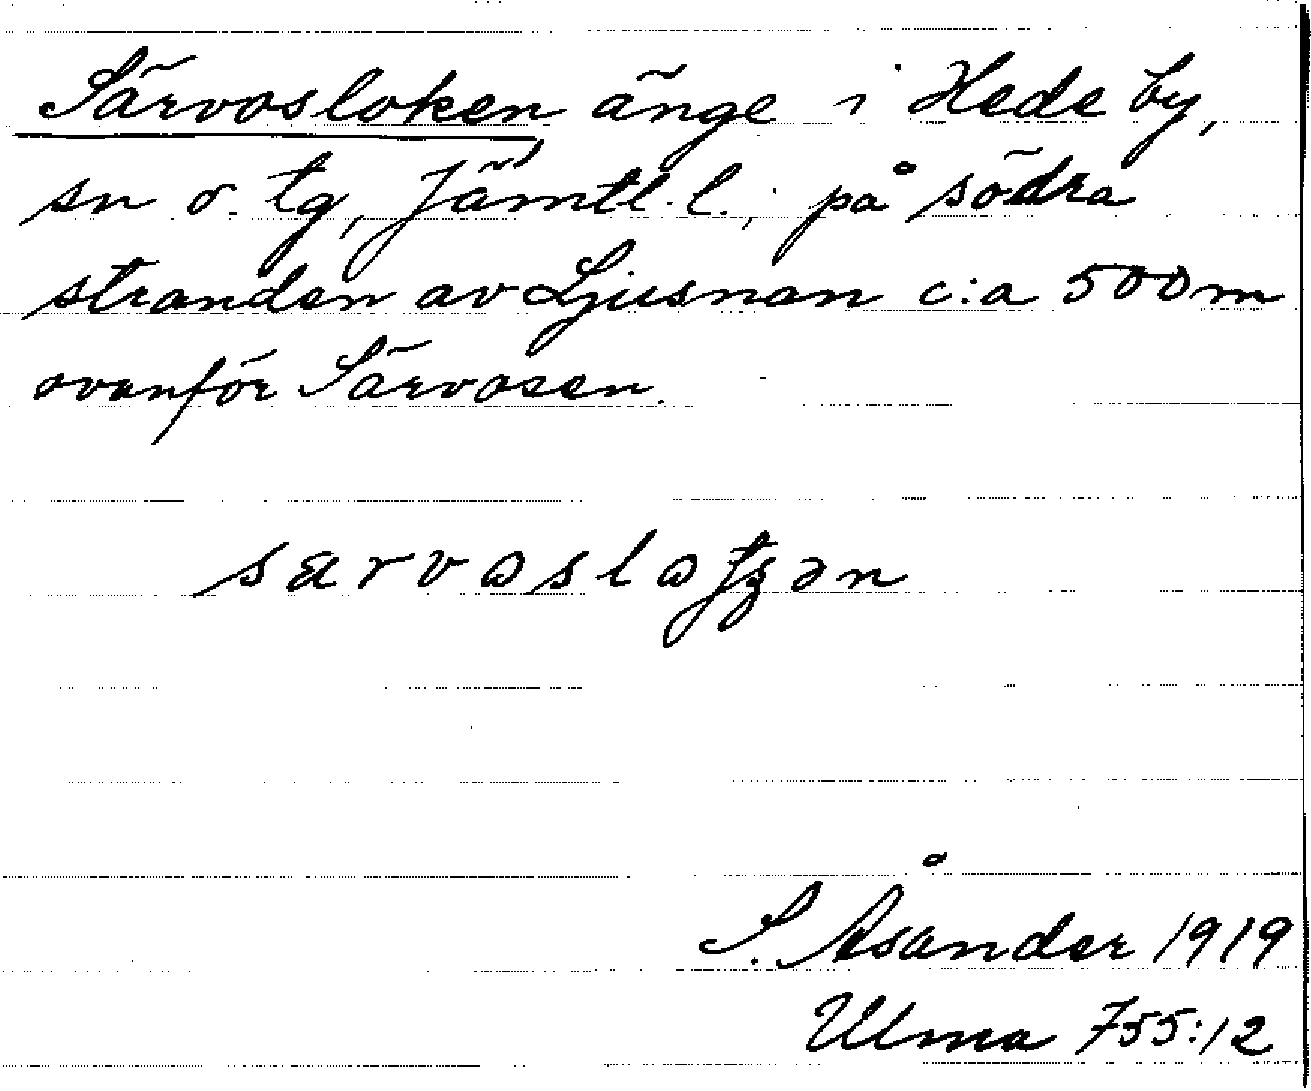 Särvosloken änge i Hede by,
sn o. tg, Jämtl. l.; på södra
stranden av Ljusnan c:a 500 m
ovanför Särvosen.
S. Åsander 1919
Ulma 755:12